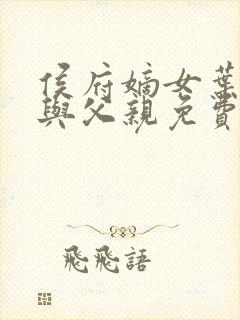 侯府嫡女葉
與父親免費
飛飛語